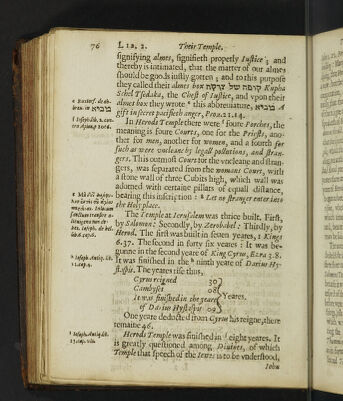 76 LIB. 2. Their Temple.
signifying almes, signifieth properly Iustice; and
thereby is intimated, that the matter of our almes
should be goods iustly gotten; and to this purpose
they called their almes box קופה של צדקה Kupha
Schel Tsedaka, the Chest of Iustice, and vpon their
almes box they wrote this abbreuiature,
gift in secret pacifieth anger, Prou.21.14.
In Herods Temple there were foure Porches, the
meaning is foure Courts, one for the Priests, ano-
ther for men, another for women, and a fourth for
such as were vncleane by legall pollutions, and stran-
gers. This outmost Court for the vncleane and stran-
gers, was separated from the womens Court, with
a stone wall of three Cubits high, which wall was
adorned with certaine pillars of equall distance,
bearing this inscription: Let no stranger enter into
the Holy place.
The Temple at Ierusalem was thrice built. First,
by Salomon: Secondly, by Zerobabel: Thirdly, by
Herod. The first was built in seuen yeares, 1 Kings
6.37. The second in forty six yeares: It was be-
gunne in the second yeare of King Cyrus, Ezra 3.8.
It was finished in the ninth yeare of Darius Hy-
staspis. The yeares rise thus,
Cyrus reigned 30
Cambyses 08 Yeares.
It was finished in the yeare
of Darius Hystaspis 09
One yeare deducted from Cyrus his reigne, there
remaine 46.
Herods Temple was finished in eight yeares. It
is greatly questioned among Diuines, of which
Temple that speech of the Iewes is to be vnderstood,
Iohn